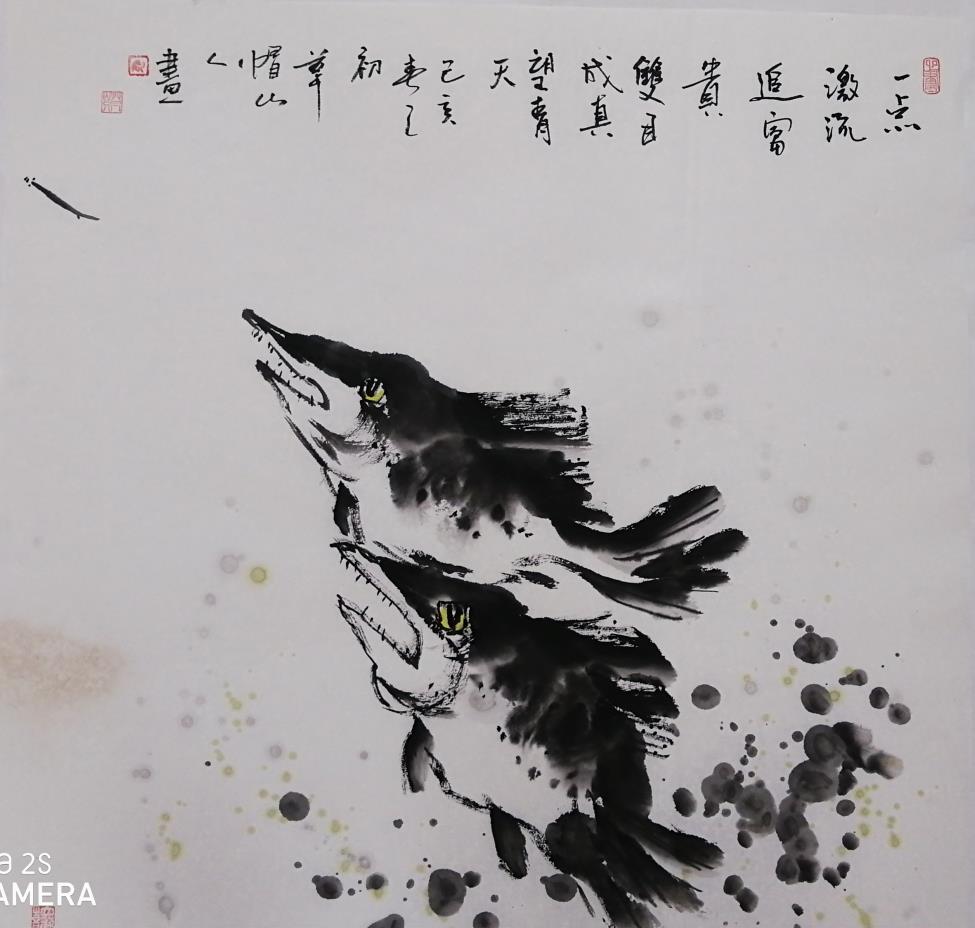 一点
激流
追富
貴
雙目
成真
望青
天
己亥
春之
初
帽山
人
畫
2S
AMERA